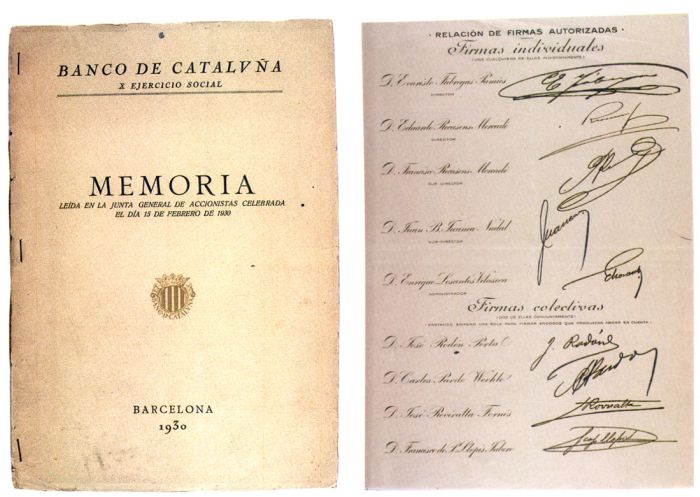 BANCO DE CATALVÑA
X EJERCICIO SOCIAL
MEMORIA
LEÍDA EN LA JUNTA GENERAL DE ACCIONISTAS CELEBRADA
EL DÍA 15 DE FEBRERO DE 1930
BANCO DE CATALVÑA
BARCELONA
1930
RELACIÓN DE FIRMAS AUTORIZADAS
Firmas individuales
(UNA CUALQUIERA DE ELLAS INDISTINTAMENTE)
D. Evaristo Fábregas Pàmies
DIRECTOR
D. Eduardo Recasens Mercadé
DIRECTOR
D. Francisco Recasens Mercadé
SUB-DIRECTOR
D. Juan B. Juanca Nadal
SUB-DIRECTOR
Juanca
D. Enrique Losantos Vilaseca
ADMINISTRADOR
Firmas colectivas
(DOS DE ELLAS CONJUNTAMENTE)
(BASTANDO EMPERO UNA SOLA PARA FIRMAR ENDOSOS QUE PRODUZCAN ABONO EN CUENTA)
D. José Rodón Portal
J. Rodón
D. Carlos Pardo Wehrle
Pardo
D. José Roviralta Fornés
J. Roviralta
D. Francisco de P. Llopis